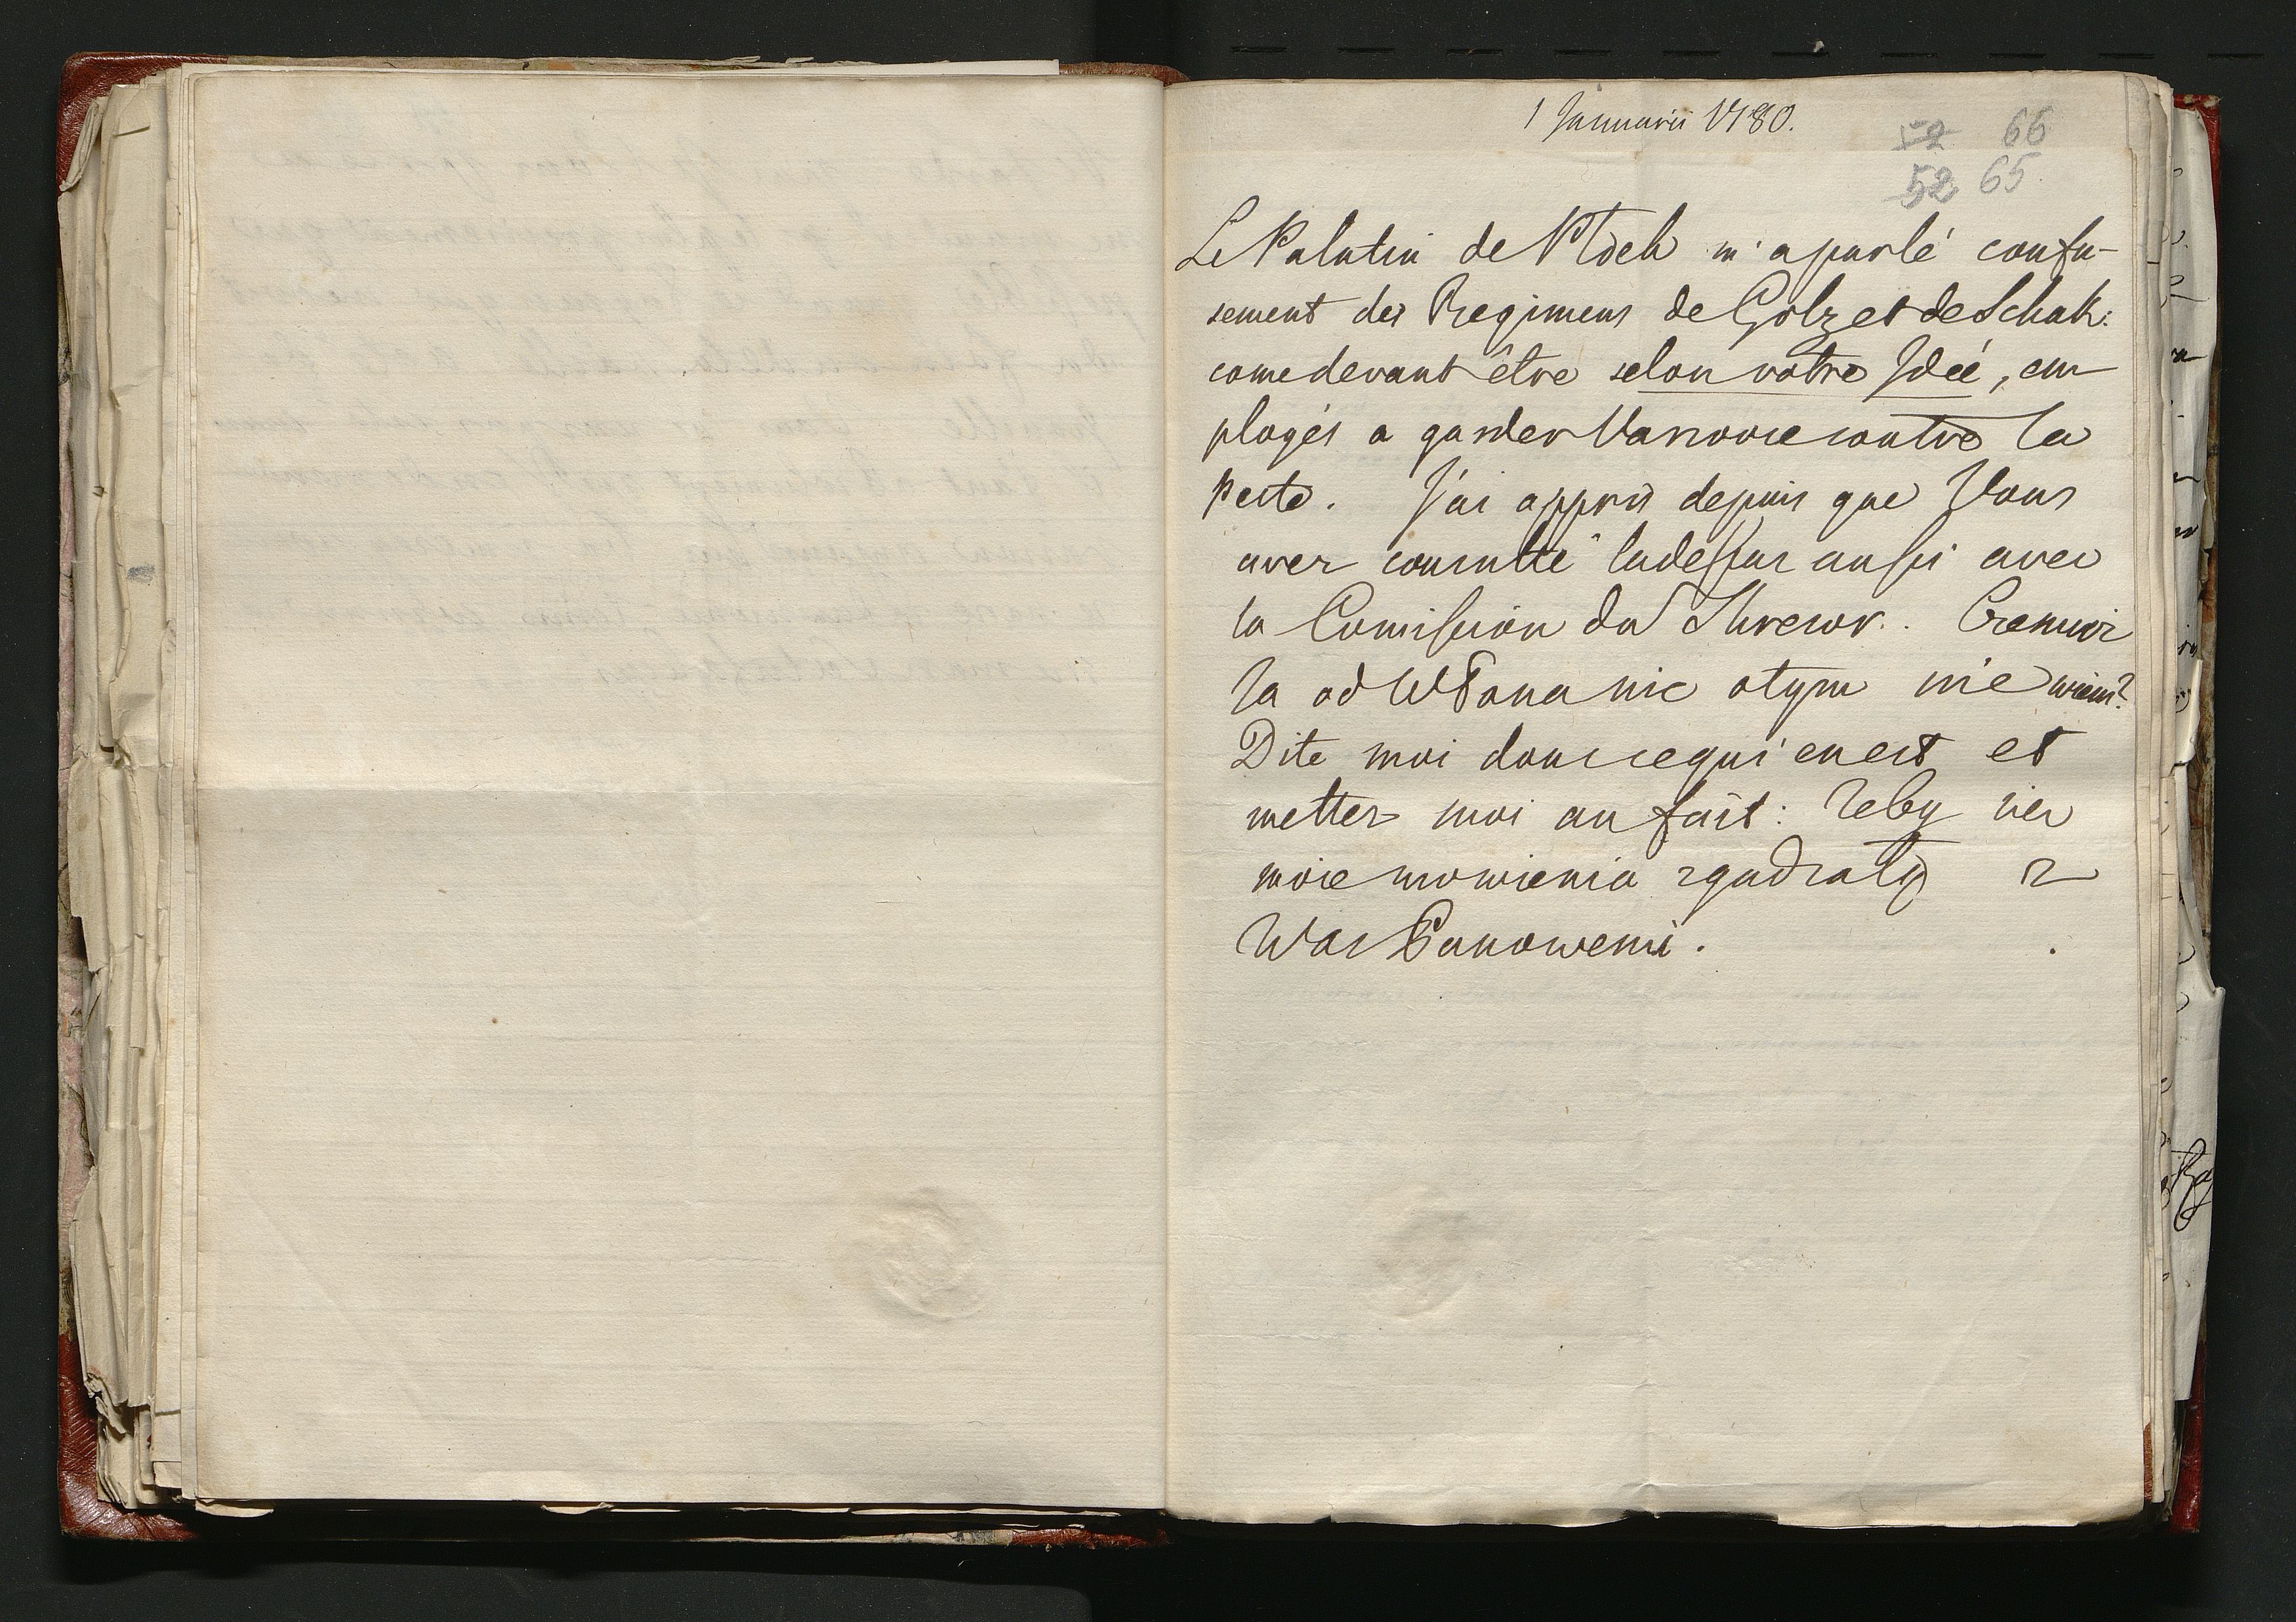 1 Januarii 1780.
52 66
52 65
Le Palatin de Plock m'a parlé confu-
sement des Regimens de Golz et de Schak:
come devant être selon votre Idée, em-
ployés a garder Varsovie contre la
Peste. J'ai appris depuis que Vous
avez consulté ladessus aussi avec
la Comission du Thresor. Czemuż
Ja od WPana nic o tym nie wiem?
Dite moi donc ce qui en est et
mettez moi au fait: żeby się
moie mowienia zgadzały z
WasPanowemi.